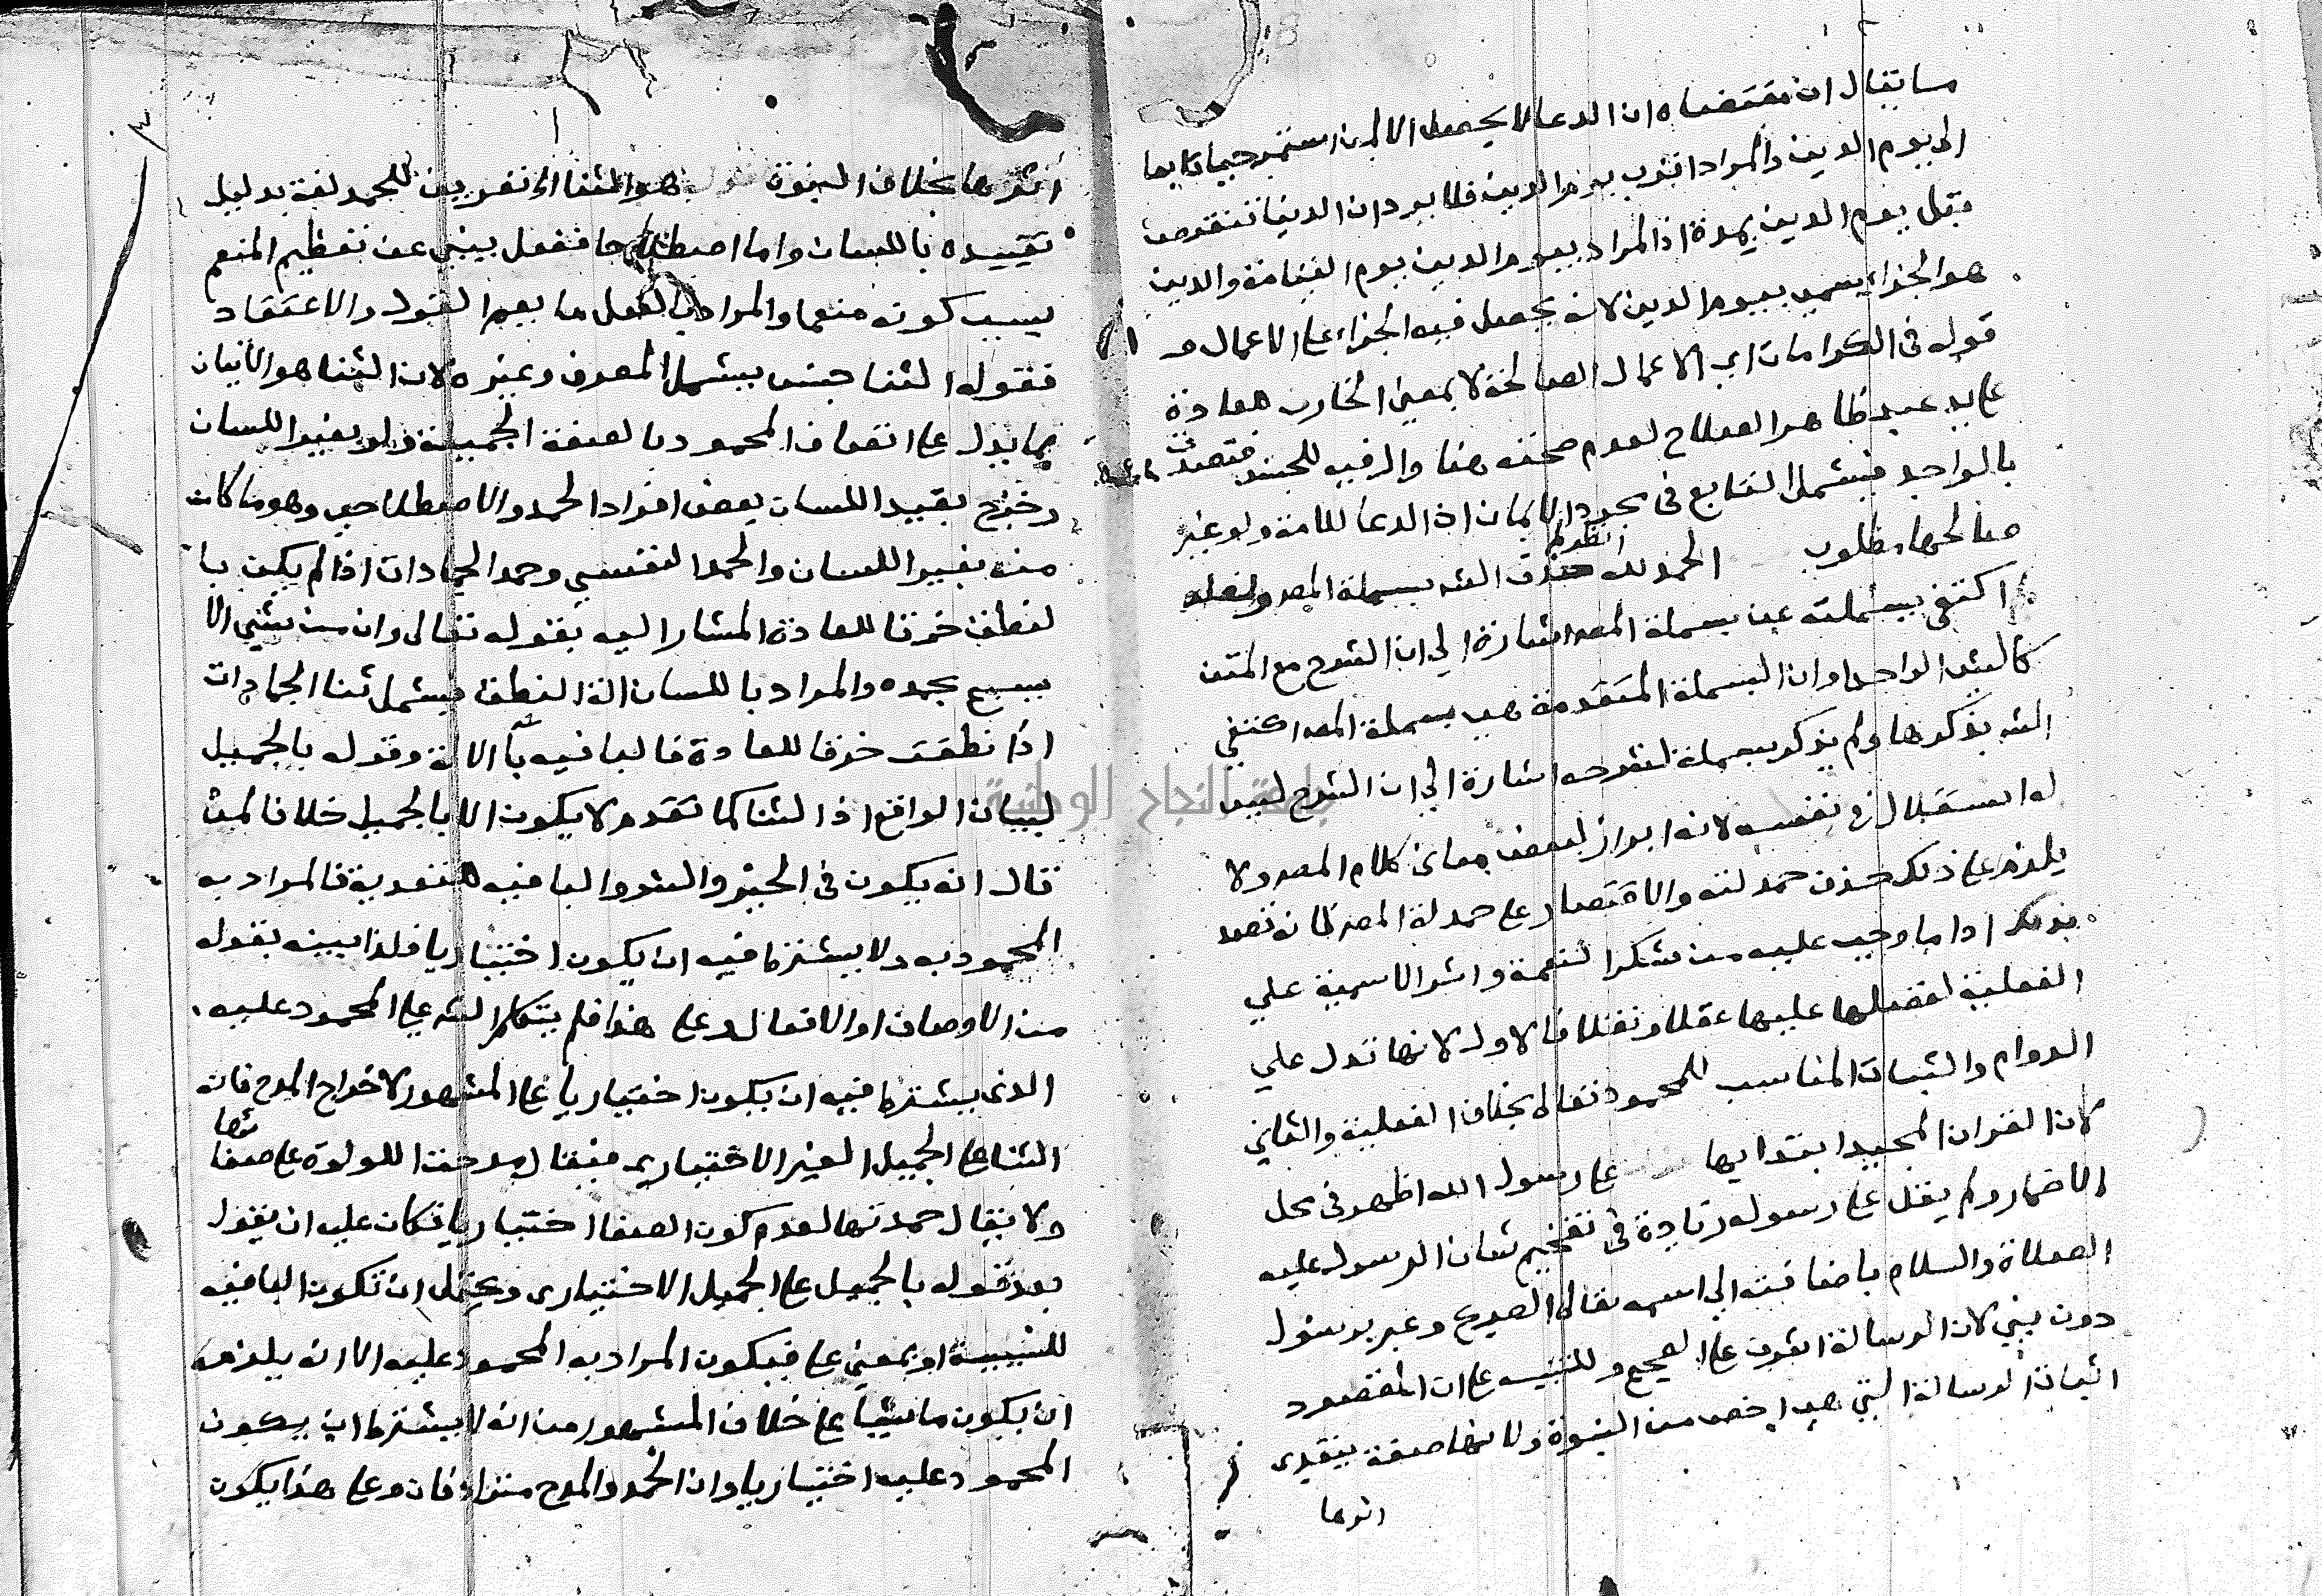 ما يقال ان مقتضاه ان الدعا لا يحصل الا لمن استمر حيا تابعا
الى يوم الدين والمراد اقرب يوم الدين فلا يرد ان الدنيا تنقرض
قبل يوم الدين بمدة اذ المراد بيوم الدين يوم القيامة والدين
هو الجزاء سمي بيوم الدين لانه يحصل فيه الجزاء على الاعمال
قوله في الكرامات اي الاعمال الصالحة لا بمعنى الخارق للعادة
على يد عبد ظاهر الصلاح لعدم صحته هنا وال فيه للجنس فتصدق
بالواحد فيشمل التابع في مجرد الايمان اذ الدعا للامة ولو غير
صالحها مطلوب الحمد لله حذف الشه بسملة المص
اكتفى ببسملته عن بسملة المص اشارة الي ان الشرح مع المتن
كالشي الواحد او ان البسملة المتقدمة هي بسملة المص اكتفي
الشه بذكرها ولم يذكر بسملة لشرحه اشارة الي ان الشرح ليس
له استقلال في نفسه لانه ابراز لبعض معاني كلام المص ولا
يلزم على ذلك حذف حمدلته والاقتصار على حمدلة المص لانه قصد
بذلك ادا ما وجب عليه من شكر النعمة واثر الاسمية علي
الفعلية لفضلها عليها عقلا ونقلا فالاول لانها تدل علي
الدوام والثبات المناسب للمحمود تعالى بخلاف الفعلية والثاني
لان القران المجيد ابتدا بها على رسول الله اظهر في محل
الاضمار ولم يقل على رسوله زيادة في تفخيم شان الرسول عليه
الصلاة والسلام باضافته الي اسمه تعالى الصريح وعبر برسول
دون نبي لان الرسالة اشرف على الصحيح وللتنبيه على ان المقصود
اثبات الرسالة التي هي اخص من النبوة ولانها صفة يتعدى
اثرها
٣
اثرها بخلاف النبوة قوله هو الثنا الخ تعريف للحمد لغة بدليل
تقييده باللسان واما اصطلاحا ففعل ينبي عن تعظيم المنعم
بسبب كونه منعما والمراد بالفعل ما يعم القول والاعتقاد
فقوله الثنا جنس يشمل المعرف وغيره لان الثنا هو الاتيان
بما يدل على اتصاف المحمود بالصفة الجميلة ولو بغير اللسان
وخرج بقيد اللسان بعض افراد الحمد والاصطلاحي وهو ما كان
منه بغير اللسان والحمد النفسي وحمد الجمادات اذا لم يكن با
لنطق خرقا للعادة المشار اليه بقوله تعالى وان من شي الا
يسبح بحمده والمراد باللسان الة النطق فيشمل ثنا الجمادات
اذا نطقت خرقا للعادة فالبا فيه با الالة وقوله بالجميل
لبيان الواقع اذ الثنا كما تقدم لا يكون الا بالجميل خلافا لمن
قال انه يكون في الخير والشر والبا فيه للتعدية فالمراد به
المحمود به ولا يشترط فيه ان يكون اختياريا فلذا بينه بقوله
من الاوصاف او الافعال وعلى هذا فلم يتكلم الشه على المحمود عليه
الذي يشترط فيه ان يكون اختياريا على المشهور لاخراج المدح فانه
الثنا على الجميل الغير الاختياري فيقال مدحت اللولوة على صفائها
ولا يقال حمدتها لعدم كون الصفا اختياريا فكان عليه ان يقول
بعد قوله بالجميل على الجميل الاختياري ويحتمل ان تكون البا فيه
للسببية او بمعنى على فيكون المراد به المحمود عليه الا انه يلزمه
ان يكون ماشيا على خلاف المشهور من انه لا يشترط ان يكون
المحمود عليه اختياريا وان الحمد والمدح مترادفان وعلى هذا يكون
جامعة النجاح الوطنية